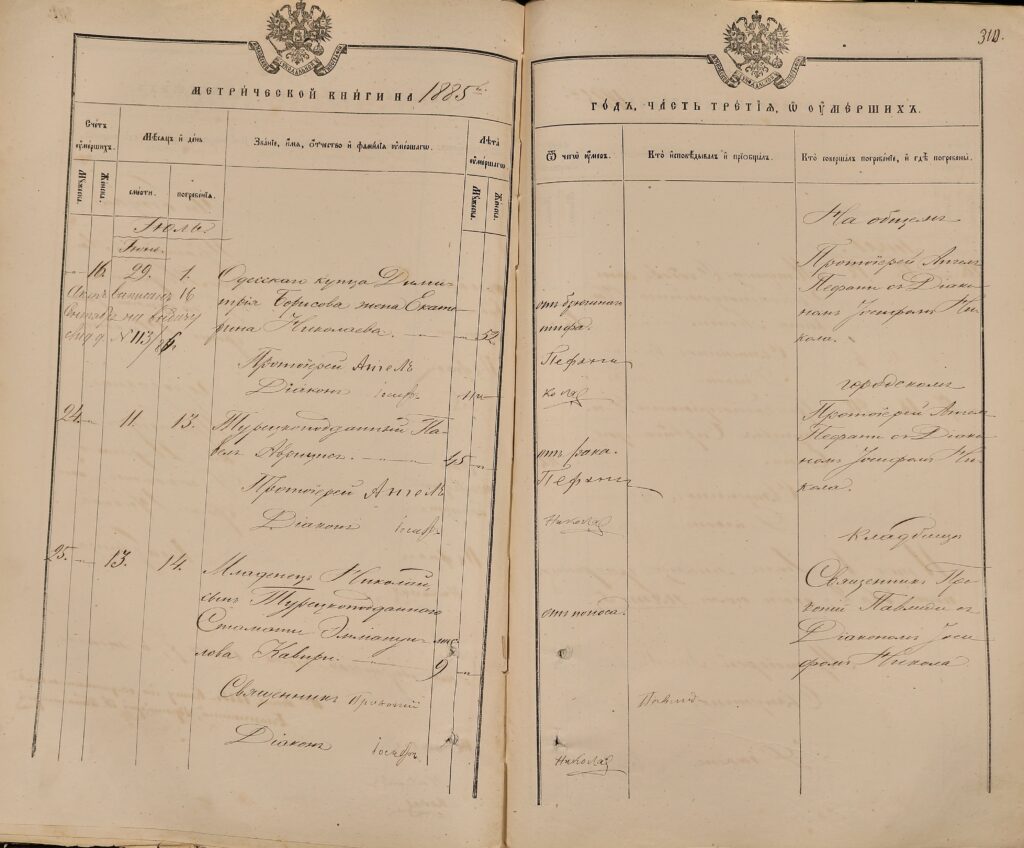 310.
МЕТРИ́ЧЕСКОЙ КНИ́ГИ НА 1885
ГО́ДЪ, ЧА́СТЬ ТРЕ́ТІЯ, Ѿ ОУМЕ́РШИХЪ.
Сче́тъ оуме́ршихъ.
Му́жеска.
Же́нска.
Мѣ́сяцъ и де́нь.
сме́рти.
погребе́нія.
Зва́ніе, и́мя, о́тчество и фами́лія оуме́ршаго.
Лѣ́та оуме́ршаго
Му́жеска.
Же́нска.
Ѿ чего́ оу́меръ.
Кто̀ исповѣ́дывалъ и прїобща́лъ.
Кто̀ соверша́лъ погребе́ніе, и гдѣ̀ погребены̀.
Іюль.
Іюнь.
16. 29. 1.
Одесскаго купца Дими-
трія Борисова жена Екате-
рина Николаева. 52
Актъ выписанъ 16
на выдачу
№ 113/
Протоіерей Ангелъ
Діаконъ Іосифъ
отъ брюшнаго
тифа.
Пефани
Никола
На общемъ
Протоіерей Ангелъ
Пефани съ Діако-
номъ Іосифомъ Ни-
кола.
24. 11. 13.
Турецкоподданный Па-
велъ 45
Протоіерей Ангелъ
Діаконъ Іосифъ
отъ рака.
Пефани
Никола
городскомъ
Протоіерей Ангелъ
Пефани съ Діако-
номъ Іосифомъ Ни-
кола.
25. 13. 14.
Младенецъ Николай,
сынъ Турецкоподданного
Стамати Эммануи-
лова Кавури. 9 мѣс.
Священникъ Прокопій
Діаконъ Іосифъ
отъ поноса.
Павлиди
Никола
кладбищѣ
Священникъ Про-
копій Павлиди съ
Діакономъ Іоси-
фомъ Никола